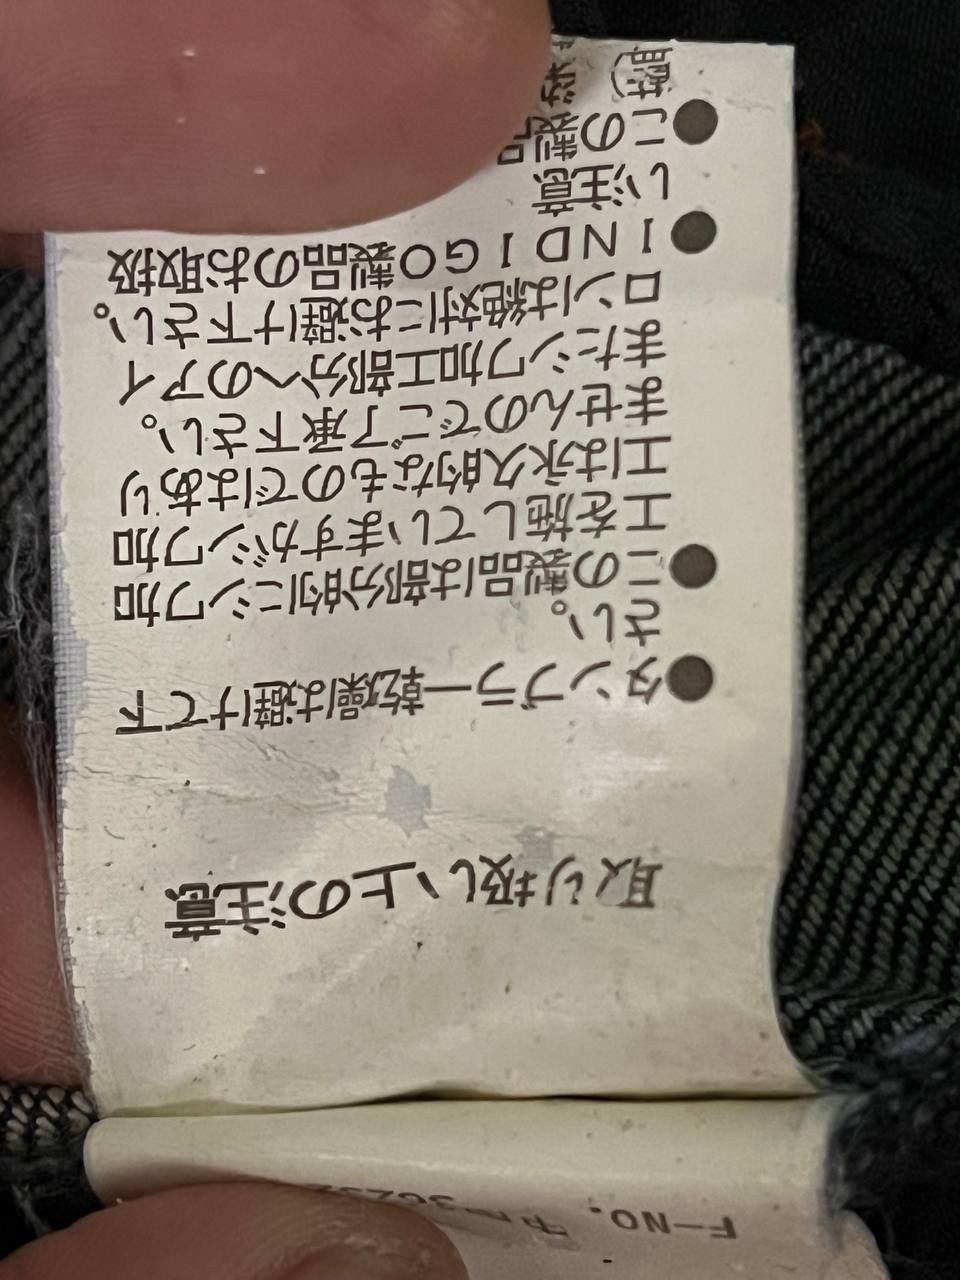 F-NO.
取り扱い上の注意
●タンブラー乾燥は避けて下
さい。
●この製品は部分的にシワ加
工を施していますがシワ加
工は永久的なものではあり
ませんのでご了承下さい。
またシワ加工部分へのアイ
ロンは絶対にお避け下さい。
●INDIGO製品のお取扱
い注意
●この製品
藍) 染